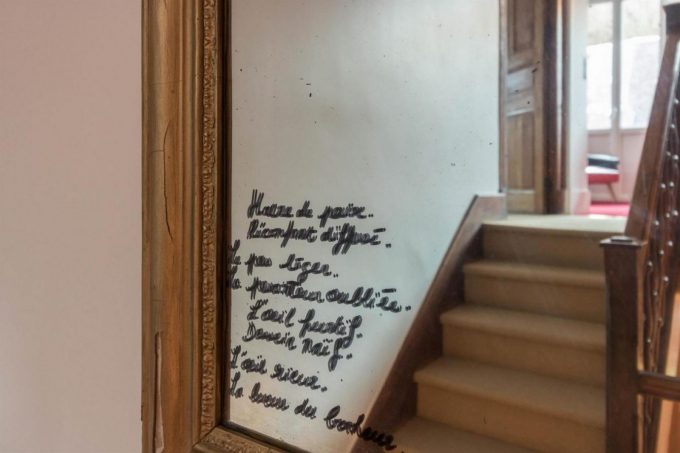 Havre de paix.
Réconfort diffusé.
Le pas léger.
La pesanteur oubliée.
L'œil furtif.
Dessein naïf.
L'œil rieur.
La lueur du bonheur.